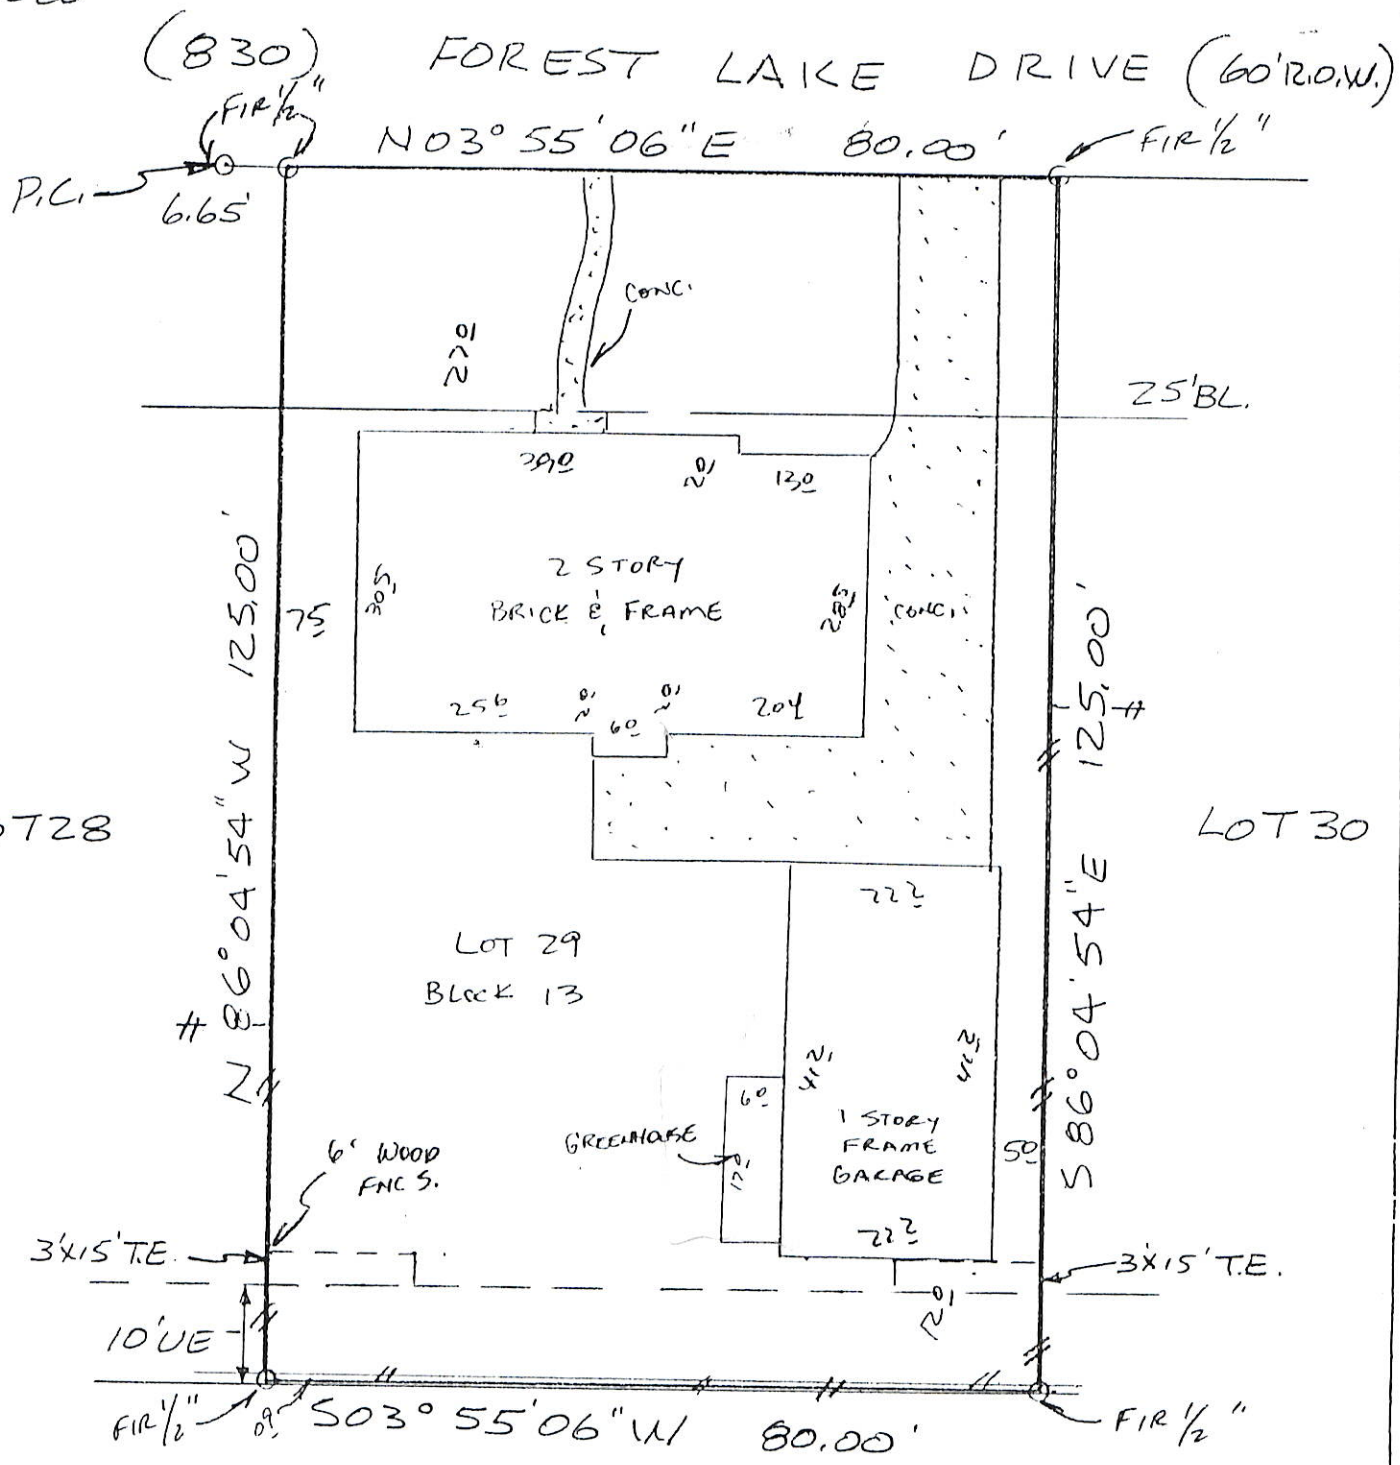 (830) FOREST LAKE DRIVE (60'R.O.W.)
FIR 1/2"
N03°55'06"E 80.00'
FIR 1/2"
P.C.
6.65'
CONC.
270
25'BL.
390
20
130
2 STORY
BRICK & FRAME
75
305
285
CONC.
256
20
60
20
204
N 86°04'54" W 125.00'
S 86°04'54"E 125.00'
T28
LOT 30
222
LOT 29
BLOCK 13
412
412
60
GREENHOUSE
170
1 STORY
FRAME
GARAGE
50
6' WOOD
FNCS.
222
3'X15'T.E.
3'X15'T.E.
120
10'UE
FIR 1/2"
S03°55'06"W 80.00'
FIR 1/2"